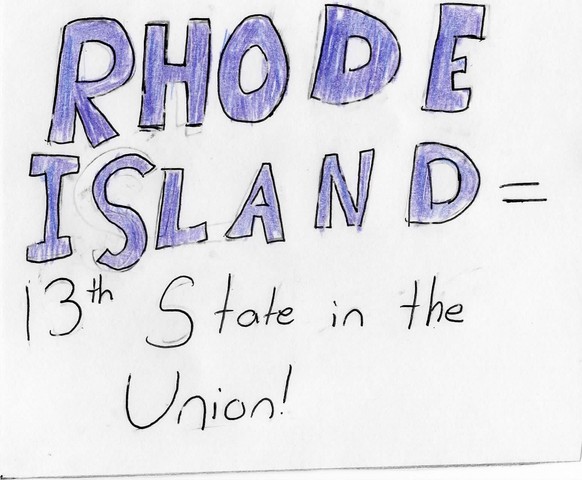 RHODE
ISLAND =
13th State in the
Union!